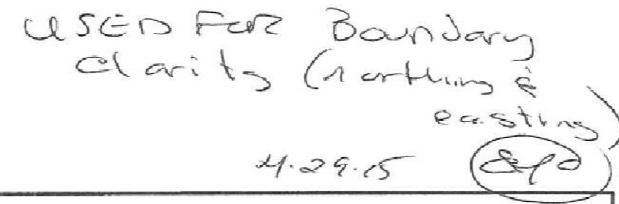 USED FOR Boundary
Clarity (northing &
easting)
4.29.15